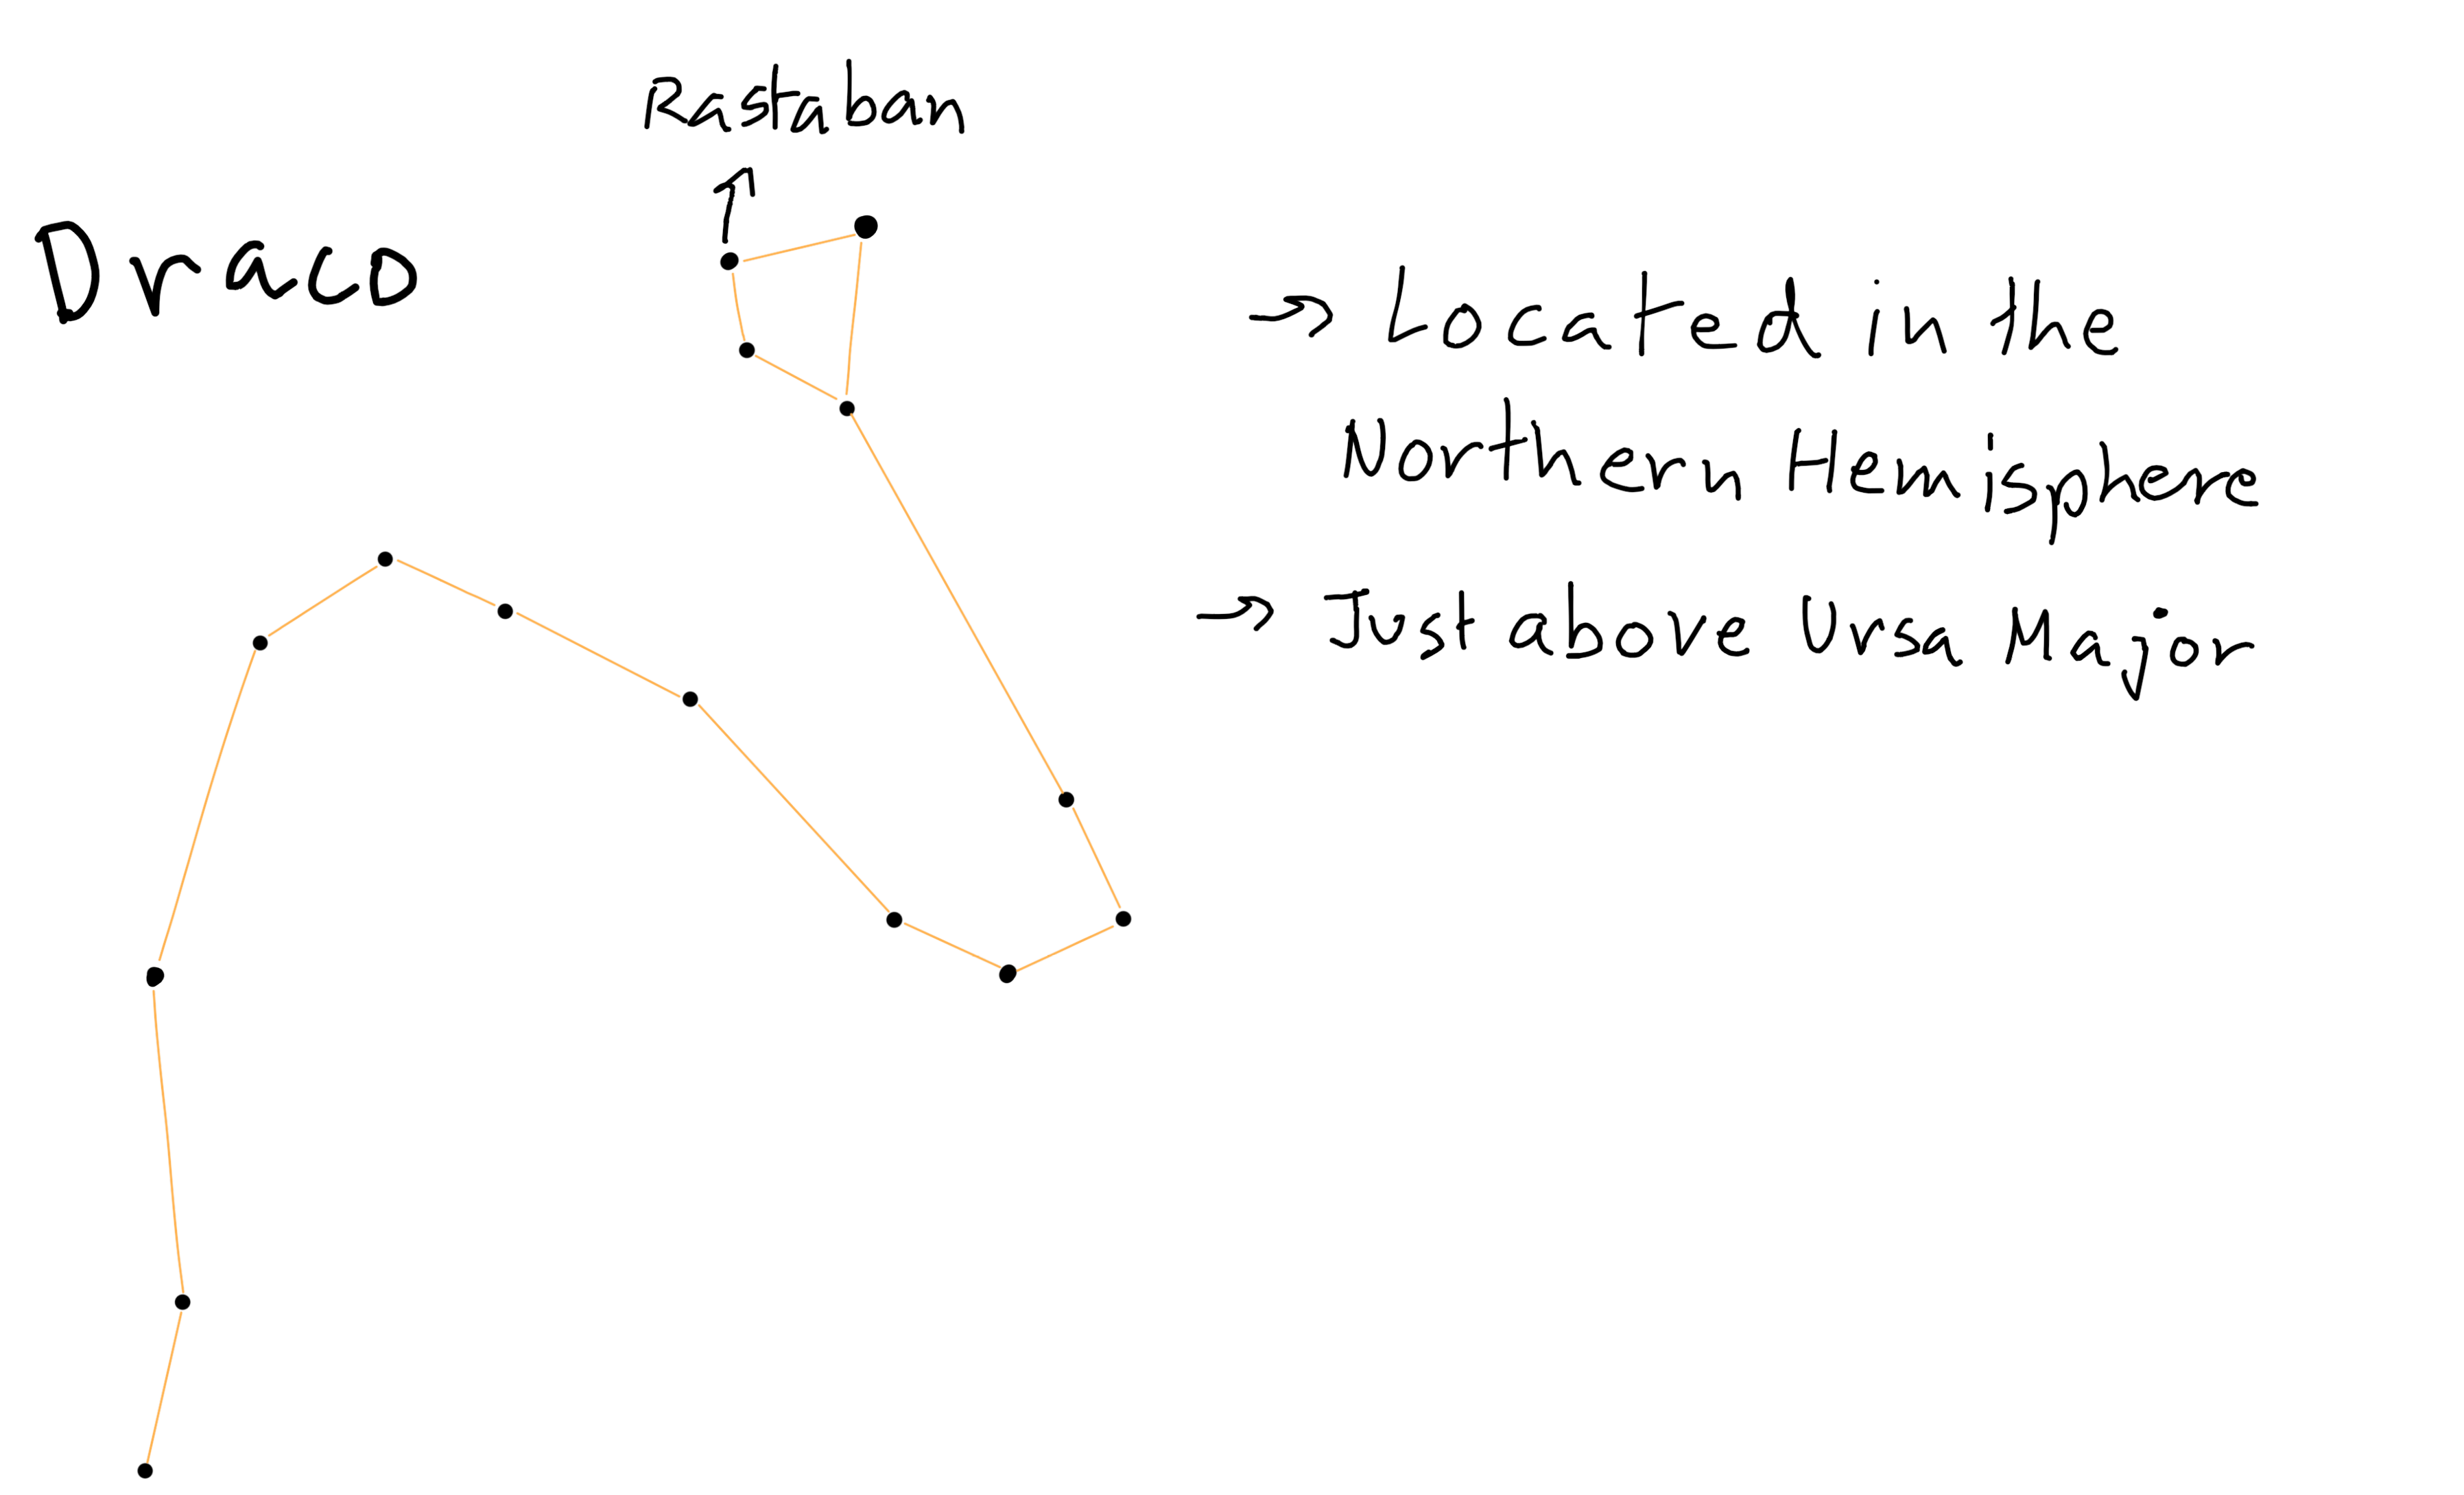 Rastaban
Draco
→ Located in the
Northern Hemisphere
→ Just above Ursa Major